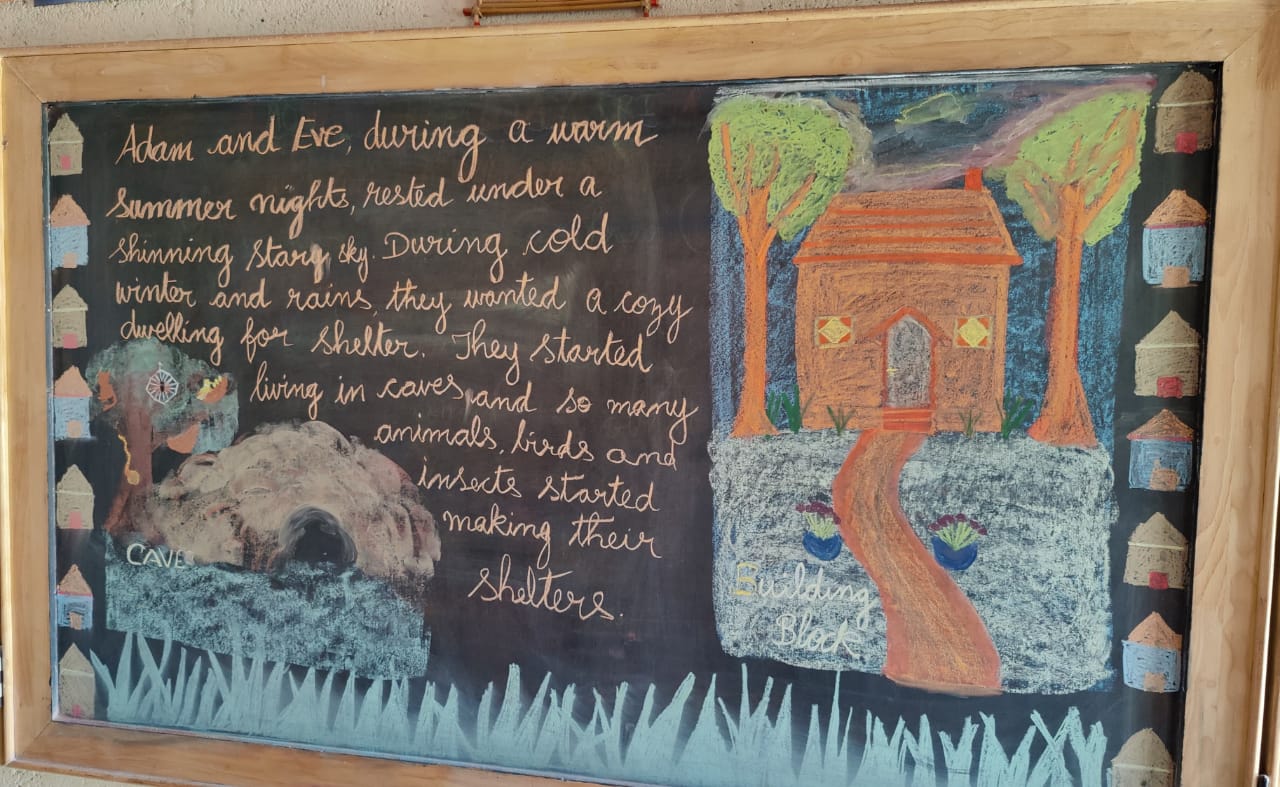 Adam and Eve, during a warm
summer nights, rested under a
shinning stary sky. During cold
winter and rains, they wanted a cozy
dwelling for shelter. They started
living in caves, and so many
animals, birds and
insects started
making their
shelters.
CAVE
Building
Block